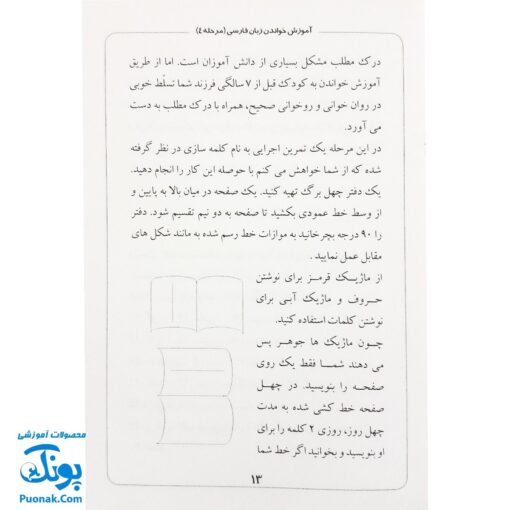 آموزش خواندن زبان فارسی (مرحله ٤)
درک مطلب مشکل بسیاری از دانش آموزان است. اما از طریق
آموزش خواندن به کودک قبل از ۷ سالگی فرزند شما تسلّط خوبی
در روان خوانی و روخوانی صحیح، همراه با درک مطلب به دست
می آورد.
در این مرحله یک تمرین اجرایی به نام کلمه سازی در نظر گرفته
شده که از شما خواهش می کنم با حوصله این کار را انجام دهید.
یک دفتر چهل برگ تهیه کنید. یک صفحه در میان بالا به پایین و
از وسط خط عمودی بکشید تا صفحه به دو نیم تقسیم شود. دفتر
را ۹۰ درجه بچرخانید به موازات خط رسم شده به مانند شکل های
مقابل عمل نمایید.
از ماژیک قرمز برای نوشتن
حروف و ماژیک آبی برای
نوشتن کلمات استفاده کنید.
چون ماژیک ها جوهر پس
می دهند شما فقط یک روی
صفحه را بنویسید. در چهل
صفحه خط کشی شده به مدت
چهل روز، روزی ۲ کلمه را برای
او بنویسید و بخوانید اگر خط شما
۱۳
محصولات آموزشی
پونک
Puonak.Com